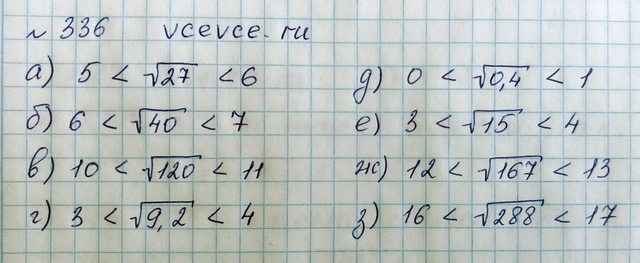 № 336 vcevce.ru
а) 5 < √27 < 6
б) 6 < √40 < 7
в) 10 < √120 < 11
г) 3 < √9,2 < 4
д) 0 < √0,4 < 1
е) 3 < √15 < 4
ж) 12 < √167 < 13
з) 16 < √288 < 17